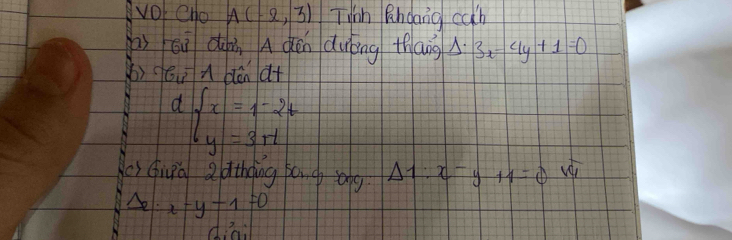 VD: Cho A(-2,3) Tính khoảng cách
a) Từ điểm A đến đường thẳng Δ: 3x - 4y + 1 = 0
b) Từ A đến đt
d { x = 1 - 2t
y = 3 + t
c) Giữa 2 đthẳng song song: Δ1: x - y + 1 = 0 và
Δ2: x - y - 1 = 0
Giải